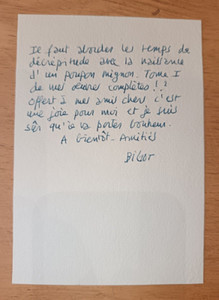 Il faut aborder les temps de
décrépitude avec la naissance
d'un poupon mignon. Tome I
de mes œuvres complètes!!
offert à mes amis chers c'est
une joie pour moi et je suis
sûr qu'il va porter bonheur.
A bientôt. Amitiés